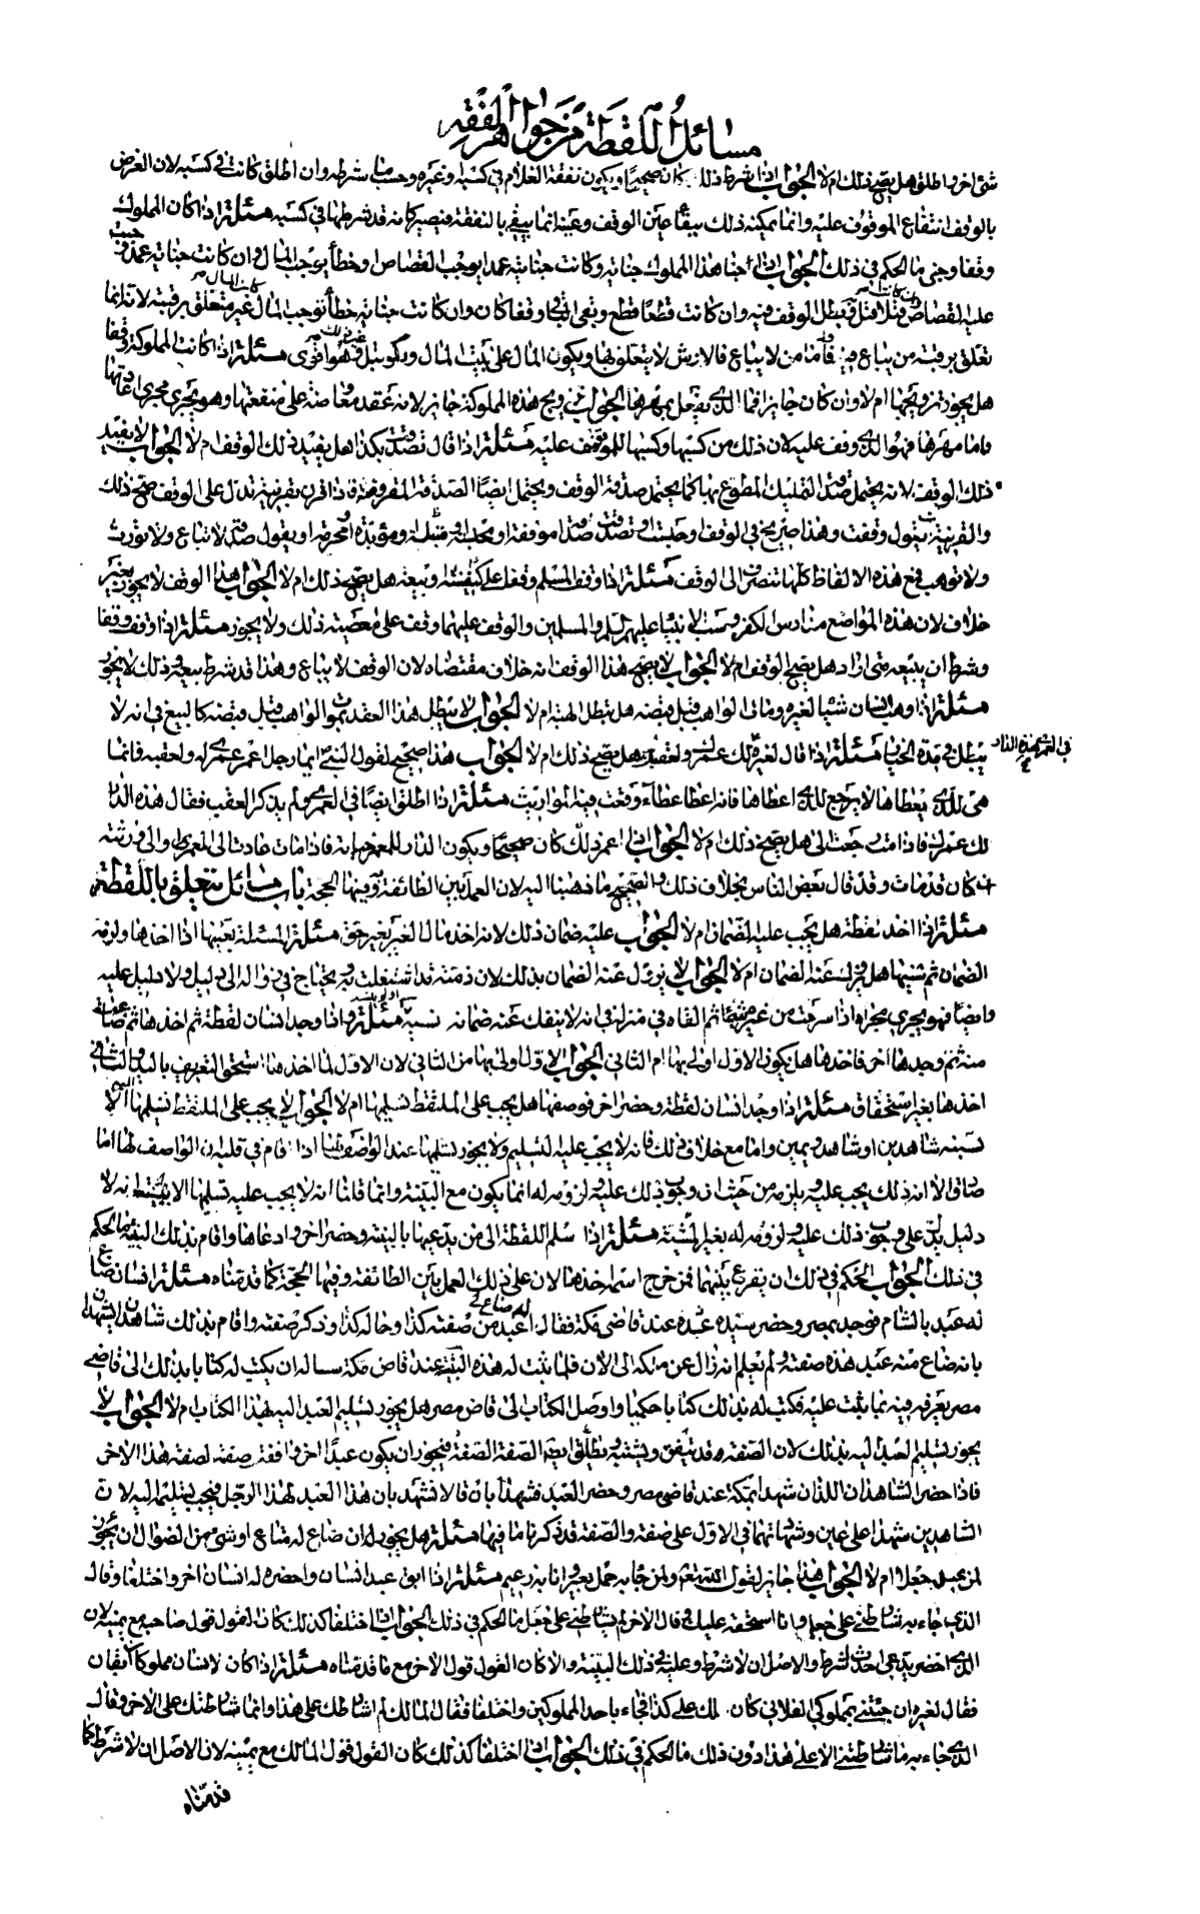 مسائل اللقطة من جواهر الفقه
شئ اخر واطلق هل يصح ذلك ام لا الجواب اذا شرط ذلك كان صحيحا ويكون نفقة الغلام في كسبه وغيره وحسب ما شرطه وان اطلق كانت في كسبه لان الغرض
بالوقف انتفاع الموقوف عليه وانما يمكنه ذلك ببقاء عين الوقف وعينه انما يبقى بالنفقة فيصير كانه قد شرطها في كسبه مسئلة اذا كان المملوك
وقفا وجنى ما الحكم في ذلك الجواب اذا جنا هذا المملوك جناية وكانت جنايته عمدا يوجب القصاص او خطأ يوجب المال وان كانت جنايته عمدا وجب
عليه القصاص فان كانت قتلا قتل وبطل الوقف فيه وان كانت قطعا قطع وبقى الباقي وقفا كان وان كانت جنايته خطأ توجب المال كان المال غير متعلق برقبته لانه انما
تعلق برقبته من يباع فيه فاما من لا يباع فالارش لا يتعلق بها ويكون المال على بيت المال وهو اقوى مسئلة اذا كانت المملوكة وقفا
هل يجوز تزويجها ام لا وان كان جايزا فما الذى يفعل بمهرها الجواب تزويج هذه المملوكة جايز لانه عقد معاوضة على منفعتها وهو يجرى مجرى اجارتها
فاما مهرها فهو للذى وقف عليه لان ذلك من كسبها وكسبها للموقف عليه مسئلة اذا قال تصدقت بكذا هل يفيد ذلك الوقف ام لا الجواب لا يفيد
ذلك الوقف لانه يحتمل صدقة التمليك المطوع بها كما يحتمل صدقة الوقف ويحتمل ايضا الصدقة المفروضة فاذا قرن بقرينة تدل على الوقف صح ذلك
والقرينة تقول وقفت وهذا صريح في الوقف او حبست او تصدقت صدقة موقوفة او محبسة او مسبلة او مؤبدة او محرمة او يقول صدقة لا تباع ولا تورث
ولا توهب فمع هذه الالفاظ كلها تنصرف الى الوقف مسئلة اذا وقف المسلم وقفا على كنيسة او بيعة هل يصح ذلك ام لا الجواب هذا الوقف لا يجوز بغير
خلاف لان هذه المواضع مدارس الكفر وسب الانبياء عليهم السلم والمسلمين والوقف عليهما وقف على معصية ذلك ولا يجوز مسئلة اذا وقف وقفا
وشرط ان يبيعه متى اراد هل يصح الوقف ام لا الجواب لا يصح هذا الوقف لانه خلاف مقتضاه لان الوقف لا يباع وهذا قد شرط بيعه وذلك لا يجوز
مسئلة اذا وهب انسان شيئا لغيره ومات الواهب قبل قبضه هل يبطل الهبة ام لا الجواب لا يبطل هذا العقد بموت الواهب قبل قبضه كالبيع في انه لا
يبطل في مدة الخيار مسئلة اذا قال لغيره لك عمرك ولعقبك هل يصح ذلك ام لا الجواب هذا صحيح لقول النبي ايما رجل اعمر عمرى له ولعقبه فانما
هى للذى يعطاها لا يرجع للذى اعطاها فانه اعطا عطاء وقعت فيه المواريث مسئلة اذا اطلق ايضا في العمرى ولم يذكر العقب فقال هذه الدار
لك عمرك فاذا مت رجعت الى هل يصح ذلك ام لا الجواب اذا اعمر ذلك كان صحيحا ويكون الدار للمعمر حياته فاذا مات عادت الى المعمر او الى ورثته
ان كان قد مات وقد قال بعض الناس بخلاف ذلك والصحيح ما ذهبنا اليه لان العمل بين الطائفة وفيها الحجة باب مسائل يتعلق باللقطة
مسئلة اذا اخذ لقطة هل يجب عليه الضمان ام لا الجواب عليه ضمان ذلك لانه اخذ مال الغير بغير حق مسئلة المسئلة بعينها اذا اخذها ولزمه
الضمان ثم هل يزول عنه الضمان ام لا الجواب لا يزول عنه الضمان بذلك لان ذمته قد اشتغلت به ويحتاج في زواله الى دليل ولا دليل عليه
وايضا فهو يجرى مجراه اذا سرقت من غير ثم القاه في منزله في انه لا ينفك عنه ضمانه مسئلة اذا وجد انسان لقطة ثم اخذها ثم ضاعت
منه ثم وجدها اخر فاخذها هل يكون الاول اولى بها ام الثاني الجواب الاول اولى بها من الثاني لان الاول لما اخذها استحق التعريف باليد والثاني
اخذها بغير استحقاق مسئلة اذا وجد انسان لقطة وحضر اخر فوصفها هل يجب على الملتقط تسليمها ام لا الجواب لا يجب على الملتقط تسليمها اليه الا
ببينة شاهدين او شاهد ويمين واما مع خلاف ذلك فانه لا يجب عليه التسليم ولا يجوز تسليمها عند الواصف لها اذا قام في قلبه ان الواصف لها اما
صادق الا ان ذلك يجب عليه ويلزمه من حيث ان وجوب ذلك عليه ولزومه له انما يكون مع البينة وانما قلنا انه لا يجب عليه تسليمها الا ببينة لانه لا
دليل يدل على وجوب ذلك عليه ولزومه له بغير البينة مسئلة اذا سلم اللقطة الى من يدعيها بالبينة وحضر اخر وادعاها واقام بذلك البينة ما الحكم
في ذلك الجواب الحكم في ذلك ان يقرع بينهما فمن خرج اسمه اخذها لان على ذلك العمل بين الطائفة وفيها الحجة كما قدمناه مسئلة انسان ضاع
له عبد بالشام فوجد بمصر وحضر سيده عنده عند قاضى مكة فقال له ضاع لى عبد من صفته كذا وحاله كذا وذكر صفته واقام بذلك شاهدان يشهدان
بانه ضاع منه عبد هذه صفته ولم يعلم انه زال عن ملكه الى الان فلما ثبت له هذه البينة عند قاض مكة سأله ان يكتب له كتابا بذلك الى قاضى
مصر يعرفه فيه بما يثبت عليه فكتب له بذلك كتابا حكميا واوصل الكتاب الى قاض مصر هل يجوز تسليم العبد اليه بهذا الكتاب ام لا الجواب لا
يجوز تسليم العبد اليه بذلك لان الصفة قد تتفق ويشتبه ويطابق الصفة الصفة فيجوز ان يكون عبدا اخر وافقه صفته لصفة هذا الاخر
فاذا حضر الشاهدان اللذان شهدا بمكة عند قاضى مصر وحضر العبد فشهدا بان قالا نشهد بان هذا العبد لهذا الرجل فيجب تسليمه اليه لان
الشاهدين شهدا على عين وشهادتهما في الاول على صفة والصفة قد ذكرنا ما فيها مسئلة هل يجوز لمن ضاع له متاع او شئ من الضوال ان يجعل
لمن يجده جعلا ام لا الجواب هذا جايز لقول الله تعالى ولمن جاء به حمل بعير وانا به زعيم مسئلة اذا ابق عبد انسان واحضره له انسان اخر واختلفا وقال
الذى جاء به شارطتنى على جعل وانا استحقه عليك وقال الاخر لم اشارطك على جعل ما الحكم في ذلك الجواب اذا اختلفا كذلك كان القول قول صاحبه مع يمينه لان
الذى احضر يدعى احداث الشرط والاصل ان لا شرط وعليه في ذلك البينة والا كان القول قول الاخر مع ما قدمناه مسئلة اذا كان لانسان مملوكان ابقان
فقال لغيره ان جئتنى بمملوكى الفلانى كان لك على كذا فجاء باحد المملوكين واختلفا فقال المالك لم اشارطك على هذا وانما شارطتك على الاخر وقال
الذى جاء به ما شارطتنى الا على هذا دون ذلك ما الحكم في ذلك الجواب اذا اختلفا كذلك كان القول قول المالك مع يمينه لان الاصل ان لا شرط كما
قدمناه